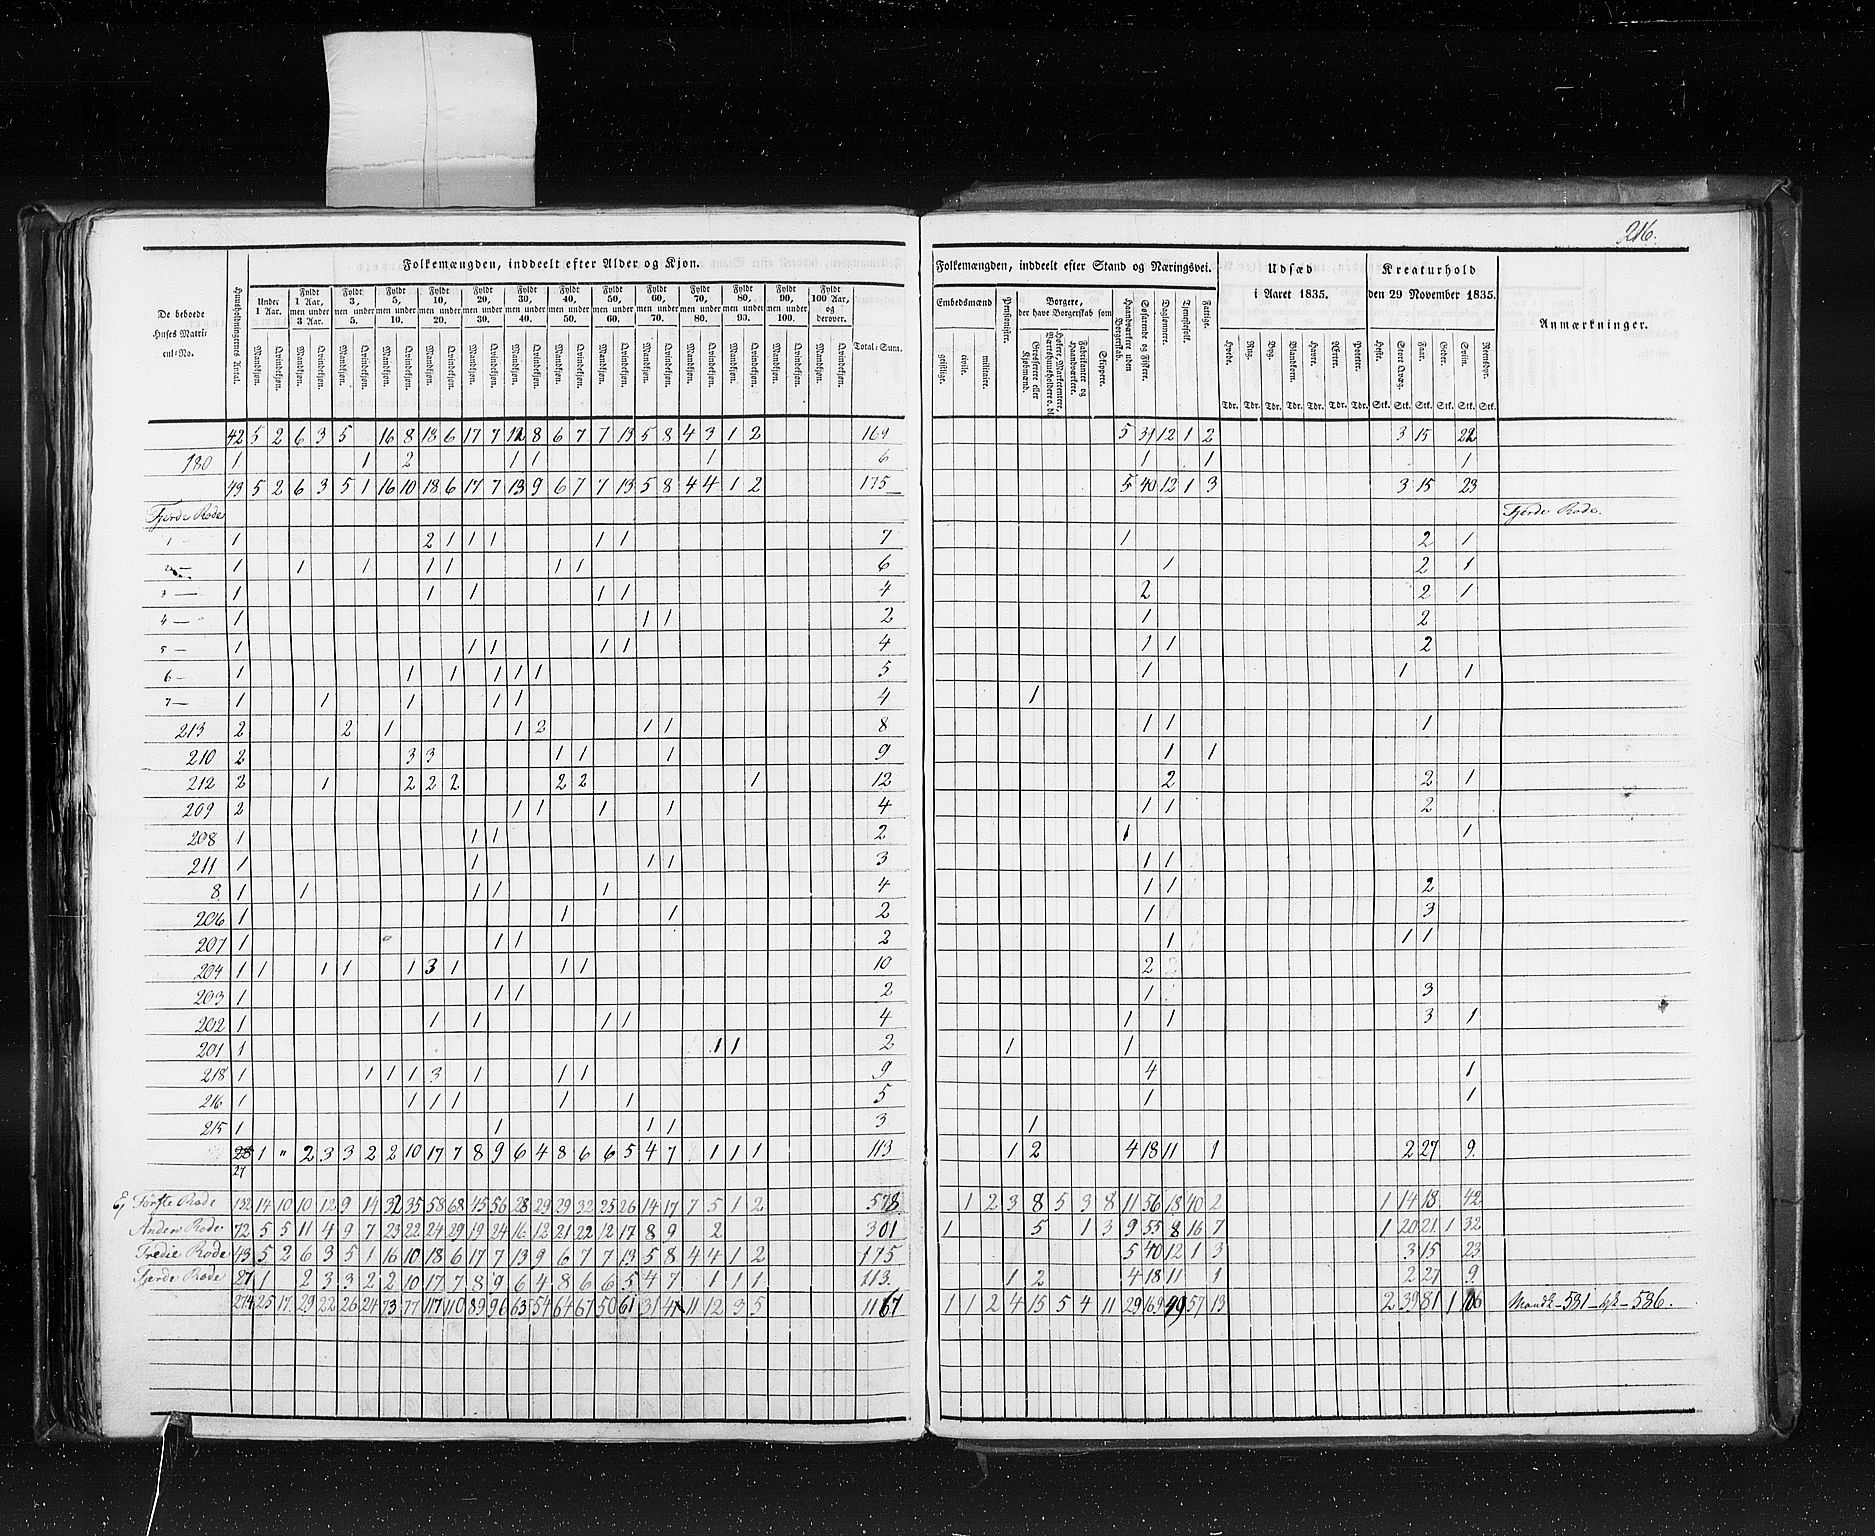 216.
Folkemængden, inddeelt efter Alder og Kjøn.
De beboede Huses Matricul-No.
Huusholdningernes Antal.
Under 1 Aar.
Fyldt 1 Aar, men under 3 Aar.
Fyldt 3, men under 5.
Fyldt 5, men under 10.
Fyldt 10, men under 20.
Fyldt 20, men under 30.
Fyldt 30, men under 40.
Fyldt 40, men under 50.
Fyldt 50, men under 60.
Fyldt 60, men under 70.
Fyldt 70, men under 80.
Fyldt 80, men under 90.
Fyldt 90, men under 100.
Fyldt 100 Aar, og derover.
Mandkjøn. Qvindekjøn.
Total-Sum.
Folkemængden, inddeelt efter Stand og Næringsvei.
Embedsmænd
geistlige. civile. militaire.
Pensionister.
Borgere, der have Borgerskab som
Grosserere eller Kjøbmænd.
Fabrikanter og Haandværkere.
Skippere.
Haandværkere uden Borgerskab.
Søfarende og Fiskere.
Dagjønnere.
Tjenestefolk.
Fattige.
Udsæd i Aaret 1835.
Hvede. Rug. Byg. Blankorn. Havre. Ærter. Poteter.
Tdr. Tdr. Tdr. Tdr. Tdr. Tdr. Tdr.
Kreaturhold den 29 November 1835.
Heste. Stort Qvæg. Faar. Geder. Sviin. Reensdyr.
Stk. Stk. Stk. Stk. Stk. Stk.
Anmærkninger.
42 5 2 6 3 5 16 8 18 6 17 7 12 8 6 7 7 13 5 8 4 3 1 2 169 5 39 12 1 2 3 15 22
180 1 1 2 1 1 1 6 1 1 1
43 5 2 6 3 5 1 16 10 18 6 17 7 13 9 6 7 7 13 5 8 4 4 1 2 175 5 40 12 1 3 3 15 23
Fjerde Rode Fjerde Rode.
1 1 2 1 1 1 1 1 7 1 2 1
2 1 1 1 1 1 1 1 6 1 2 1
3 1 1 1 1 1 4 2 2 1
4 1 1 1 2 1 2
5 1 1 1 1 1 4 1 1 2
6 1 1 1 1 1 1 5 1 1 1
7 1 1 1 1 1 4 1
213 2 2 1 1 2 1 1 8 1 1 1
210 2 3 3 1 1 1 9 1 1
212 2 1 2 2 2 2 2 1 12 2 2 1
209 2 1 1 1 1 4 1 1 2
208 1 1 1 2 1 1
211 1 1 1 1 3 1 1
8 1 1 1 1 1 4 1 1 2
206 1 1 1 2 1 3
207 1 1 1 2 1 1 1
204 1 1 1 1 1 3 1 1 1 10 2
203 1 1 1 2 1 3
202 1 1 1 1 1 4 1 1 3 1
201 1 1 1 2 1 1
218 1 1 1 1 3 1 1 1 9 4 1
216 1 1 1 1 1 1 5 1 1
215 1 1 1 1 3 1
28 1 " 2 3 3 2 2 10 17 7 8 9 6 4 8 6 6 5 4 7 1 1 1 113 1 2 4 18 11 1 2 27 9.
27
Første Rode 132 14 10 10 12 9 14 32 35 58 68 45 56 28 29 29 32 25 26 14 17 7 5 1 2 578 1 2 3 8 5 3 8 11 56 18 40 2 1 14 18 42
Anden Rode 72 5 5 11 4 9 7 23 22 24 29 19 24 16 12 21 22 12 17 8 9 2 301 1 5 1 3 9 55 8 16 7 1 20 21 1 32
Tredie Rode 43 5 2 6 3 5 1 16 10 18 6 17 7 13 9 6 7 7 13 5 8 4 4 1 2 175 5 40 12 1 3 3 15 23
Fjerde Rode 27 1 2 3 3 2 2 10 17 7 8 9 6 4 8 6 6 5 4 7 1 1 1 113 1 2 4 18 11 1 2 27 9.
274 25 17 29 22 26 24 73 77 117 110 89 96 63 54 64 67 50 61 31 41 11 12 3 5 1167 1 1 2 4 15 5 4 11 29 169 49 57 13 2 39 81 1 106 Mandk - 531 - qk - 536.